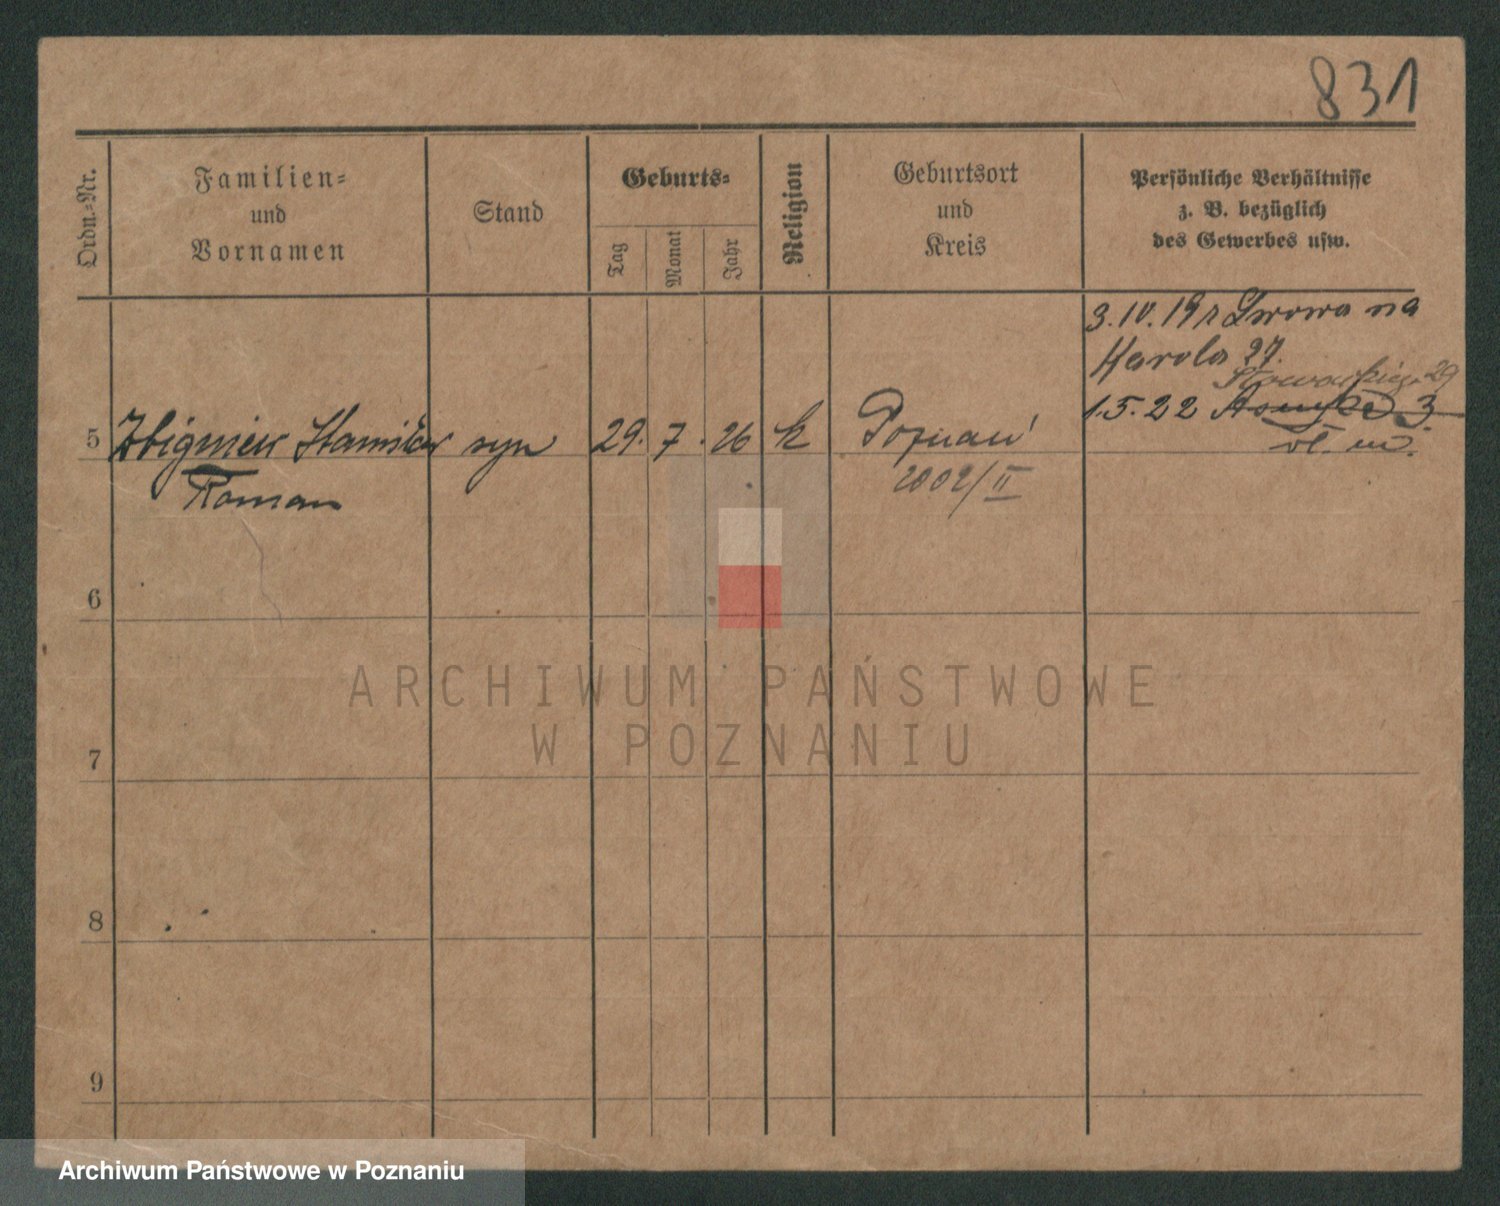 831
Ordn.-Nr.
Familien-
und
Vornamen
Stand
Geburts-
Tag
Monat
Jahr
Religion
Geburtsort
und
Kreis
Persönliche Verhältnisse
z. B. bezüglich
des Gewerbes usw.
3.IV.19 r Lwowa na
Karola 27.
Słowackiego 29
1.5.22 Asnyka 3.
wł. m.
5 Zbigniew Stanisław syn 29. 7. 26 k Poznań
Roman
2002/II
6
7
8
9
ARCHIWUM PAŃSTWOWE
W POZNANIU
Archiwum Państwowe w Poznaniu